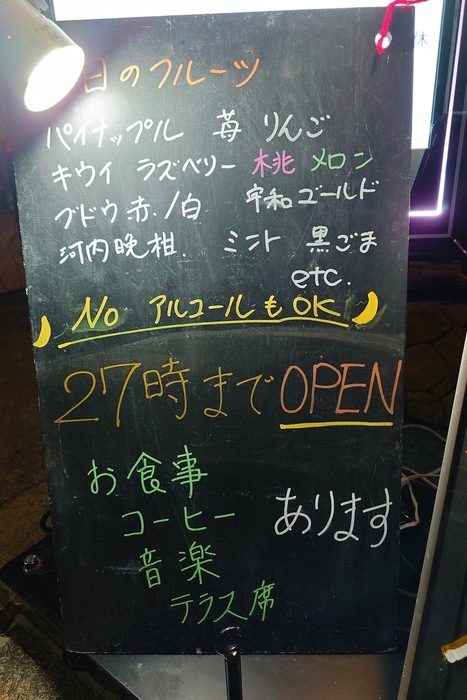 日のフルーツ
パイナップル 苺 りんご
キウイ ラズベリー 桃 メロン
ブドウ赤/白 宇和ゴールド
河内晩柑. ミント 黒ごま
etc.
No アルコールもOK
27時までOPEN
お食事
コーヒー あります
音楽
テラス席
休